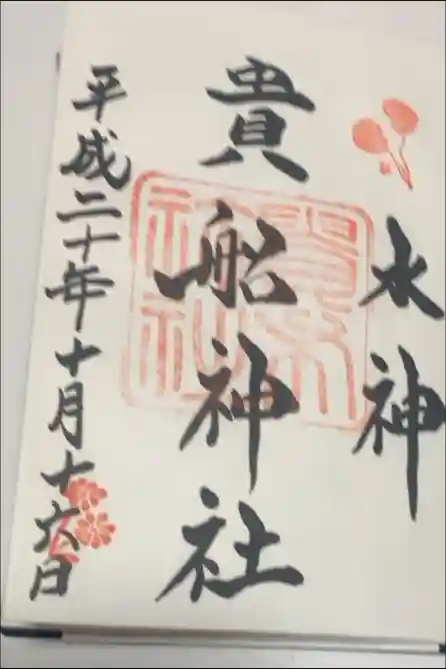 水神
貴船神社
平成二十年十月十六日